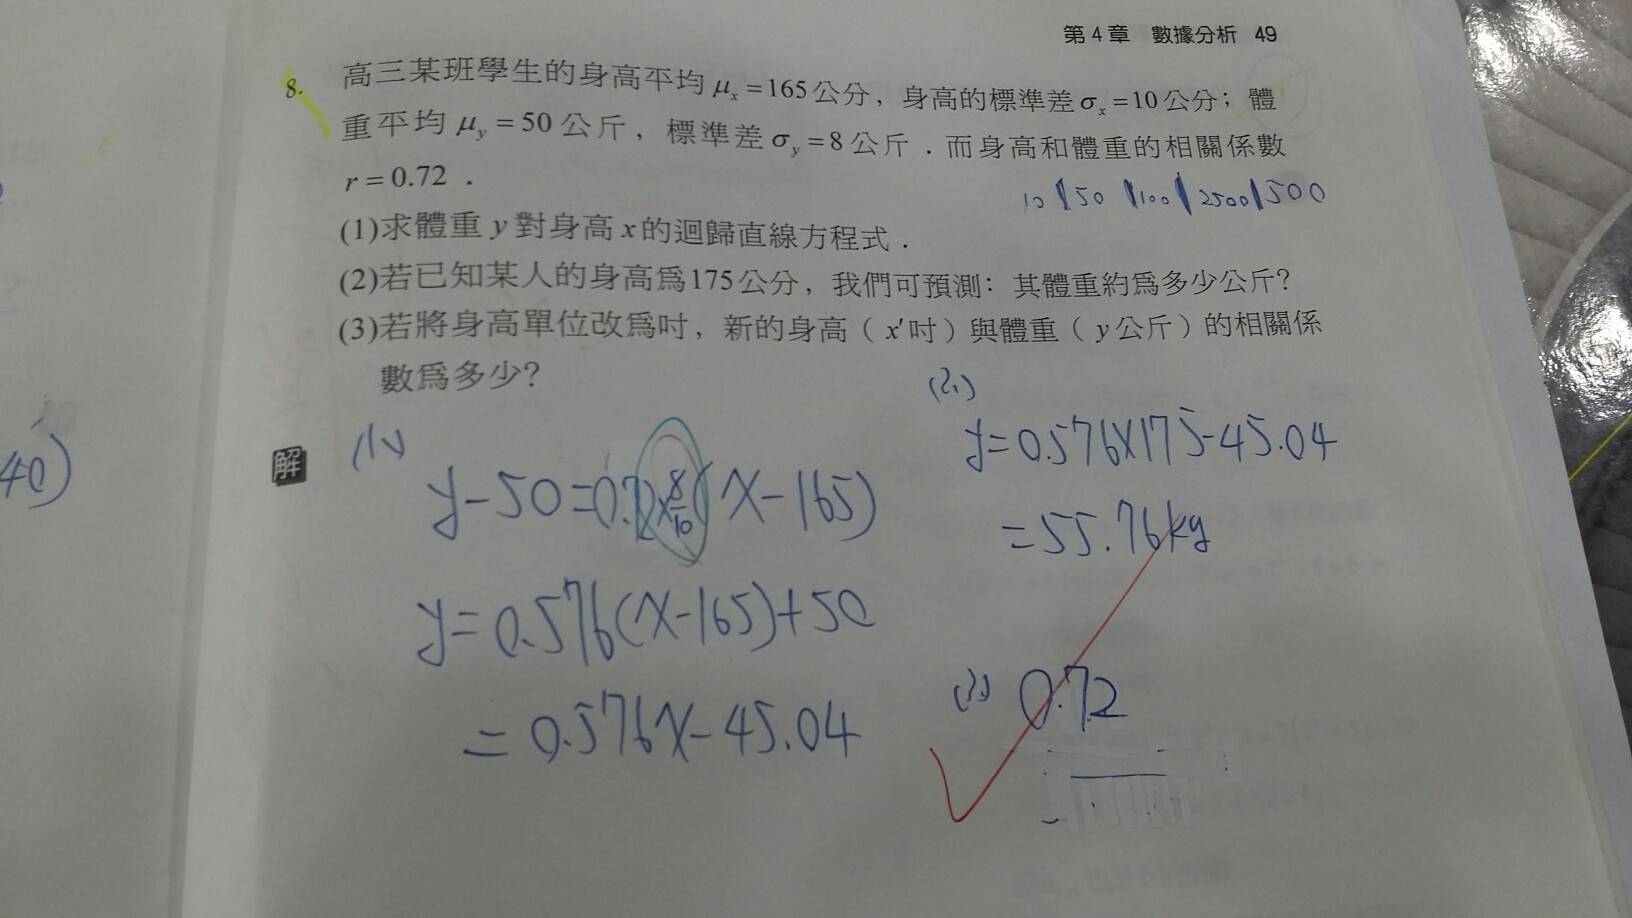 第4章 數據分析 49
8. 高三某班學生的身高平均 μx=165公分，身高的標準差σx=10公分；體
重平均 μy=50公斤，標準差σy=8公斤．而身高和體重的相關係數
r=0.72．
10 | 50 | 100 | 2500 | 500
(1)求體重 y 對身高 x 的迴歸直線方程式．
(2)若已知某人的身高為175公分，我們可預測：其體重約為多少公斤？
(3)若將身高單位改為吋，新的身高（x′吋）與體重（y公斤）的相關係
數為多少？
解 (1)
y-50=0.72×8/10(x-165)
y=0.576(x-165)+50
=0.576x-45.04
(2)
y=0.576×175-45.04
=55.76kg
(3) 0.72
40)